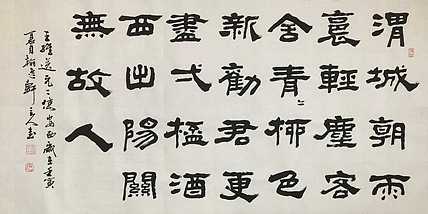 渭城朝雨
裛輕塵客
舍青〻柳色
新勸君更
盡弌榼酒
西出陽關
無故人
王維送元二使安西歲在壬寅
夏月軒主人書